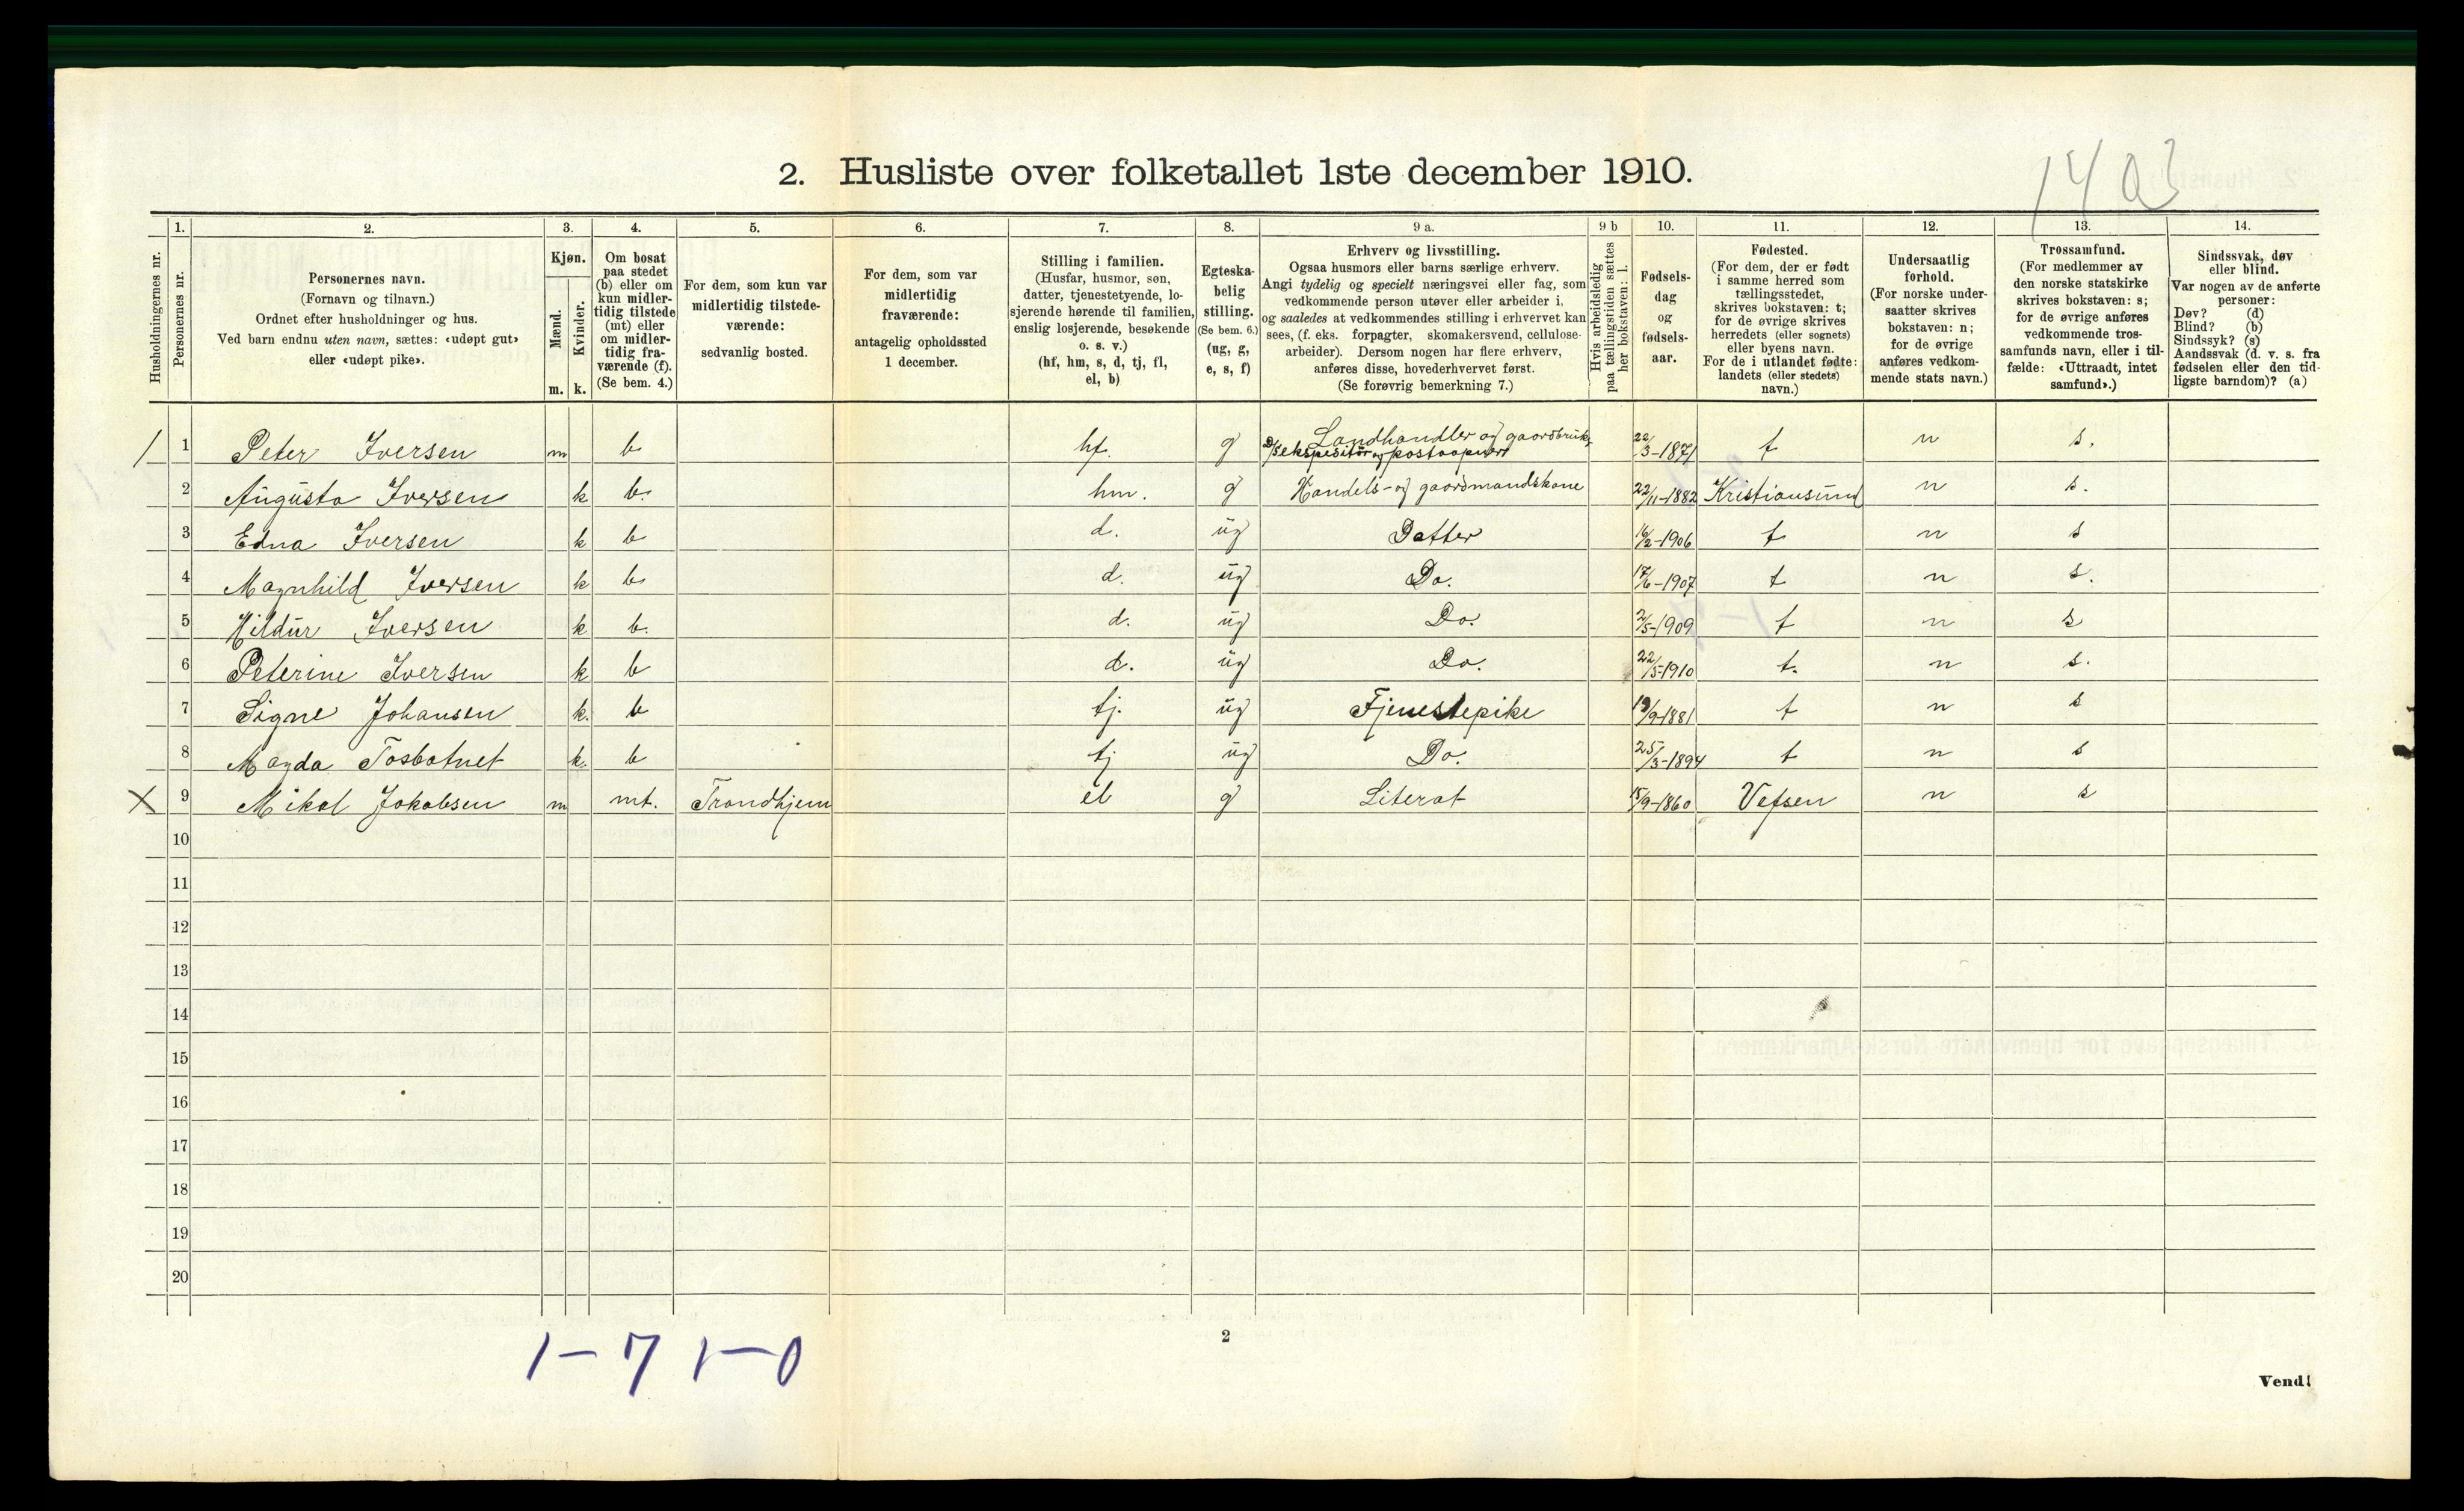 1403
2. Husliste over folketallet 1ste december 1910.
Husholdningernes nr.
1. Personernes nr.
2. Personernes navn.
(Fornavn og tilnavn.)
Ordnet efter husholdninger og hus.
Ved barn endnu uten navn, sættes: «udøpt gut»
eller «udøpt pike».
3. Kjøn.
Mænd. m.
Kvinder. k.
4. Om bosat
paa stedet
(b) eller om
kun midler-
tidig tilstede
(mt) eller
om midler-
tidig fra-
værende (f).
(Se bem. 4.)
5. For dem, som kun var
midlertidig tilstede-
værende:
sedvanlig bosted.
6. For dem, som var
midlertidig
fraværende:
antagelig opholdssted
1 december.
7. Stilling i familien.
(Husfar, husmor, søn,
datter, tjenestetyende, lo-
sjerende hørende til familien,
enslig losjerende, besøkende
o. s. v.)
(hf, hm, s, d, tj, fl,
el, b)
8. Egteska-
belig
stilling.
(Se bem. 6.)
(ug, g,
e, s, f)
9 a. Erhverv og livsstilling.
Ogsaa husmors eller barns særlige erhverv.
Angi tydelig og specielt næringsvei eller fag, som
vedkommende person utøver eller arbeider i,
og saaledes at vedkommendes stilling i erhvervet kan
sees, (f. eks. forpagter, skomakersvend, cellulose-
arbeider). Dersom nogen har flere erhverv,
anføres disse, hovederhvervet først.
(Se forøvrig bemerkning 7.)
9 b Hvis arbeidsledig
paa tællingstiden sættes
her bokstaven: l.
10. Fødsels-
dag
og
fødsels-
aar.
11. Fødested.
(For dem, der er født
i samme herred som
tællingsstedet,
skrives bokstaven: t;
for de øvrige skrives
herredets (eller sognets)
eller byens navn.
For de i utlandet fødte:
landets (eller stedets)
navn.)
12. Undersaatlig
forhold.
(For norske under-
saatter skrives
bokstaven: n;
for de øvrige
anføres vedkom-
mende stats navn.)
13. Trossamfund.
(For medlemmer av
den norske statskirke
skrives bokstaven: s;
for de øvrige anføres
vedkommende tros-
samfunds navn, eller i til-
fælde: «Uttraadt, intet
samfund».)
14. Sindssvak, døv
eller blind.
Var nogen av de anførte
personer:
Døv? (d)
Blind? (b)
Sindssyk? (s)
Aandssvak (d. v. s. fra
fødselen eller den tid-
ligste barndom)? (a)
/ 1 Peter Iversen m b hf. g Landhandler og gaardbruk. D/S ekspeditør og postaapner 22/3-1871 t n s.
2 Augusta Iversen k b. hm. g Handels- og gaardmandskone 22/11-1882 Kristiansund n s.
3 Edna Iversen k b d. ug Datter 16/2-1906 t n s
4 Magnhild Iversen k b d. ug Do. 17/6-1907 t n s.
5 Hildur Iversen k b. d. ug Do. 2/5-1909 t n s
6 Peterine Iversen k b d. ug Do. 22/5-1910 t. n s.
7 Signe Johansen k. b tj. ug Tjenestepike 19/9-1881 t n s
8 Magda Tosbotnet k. b tj ug Do. 25/3-1894 t n s
X 9 Mikal Jakobsen m mt. Trondhjem el g Literat 15/9-1860 Vefsen n s
10
11
12
13
14
15
16
17
18
19
20
1-7 1-0
2
Vend!